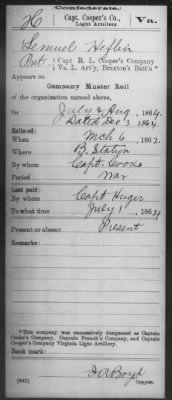 Confederate.
H | Capt. Cooper's Co., Light Artillery. | Va.
Lemuel Heflin
Pvt. Capt. R. L. Cooper's Company
Va. L. Art'y, Braxton's Batt'n *
Appears on
Company Muster Roll
of the organization named above,
for July & Aug, 1864.
Dated Dec 3 1864
Enlisted:
When Mch 6, 1862.
Where B. Station
By whom Capt. Cooke
Period War
Last paid:
By whom Capt Huger
To what time July 1, 1864
Present or absent Present
Remarks:
* This company was successively designated as Captain
Cooke's Company, Captain French's Company, and Captain
Cooper's Company Virginia Light Artillery.
Book mark:
(642) J A Boyd
Copyist.